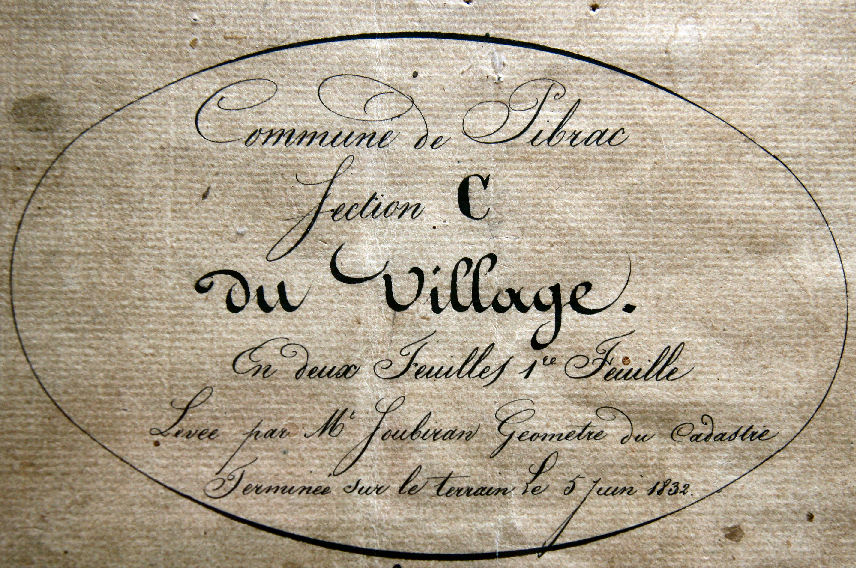 Commune de Pibrac
Section C
du Village.
En deux Feuilles 1re Feuille
Levée par Mr Soubiran Géometre du Cadastre
Terminée sur le terrain Le 5 Juin 1832.